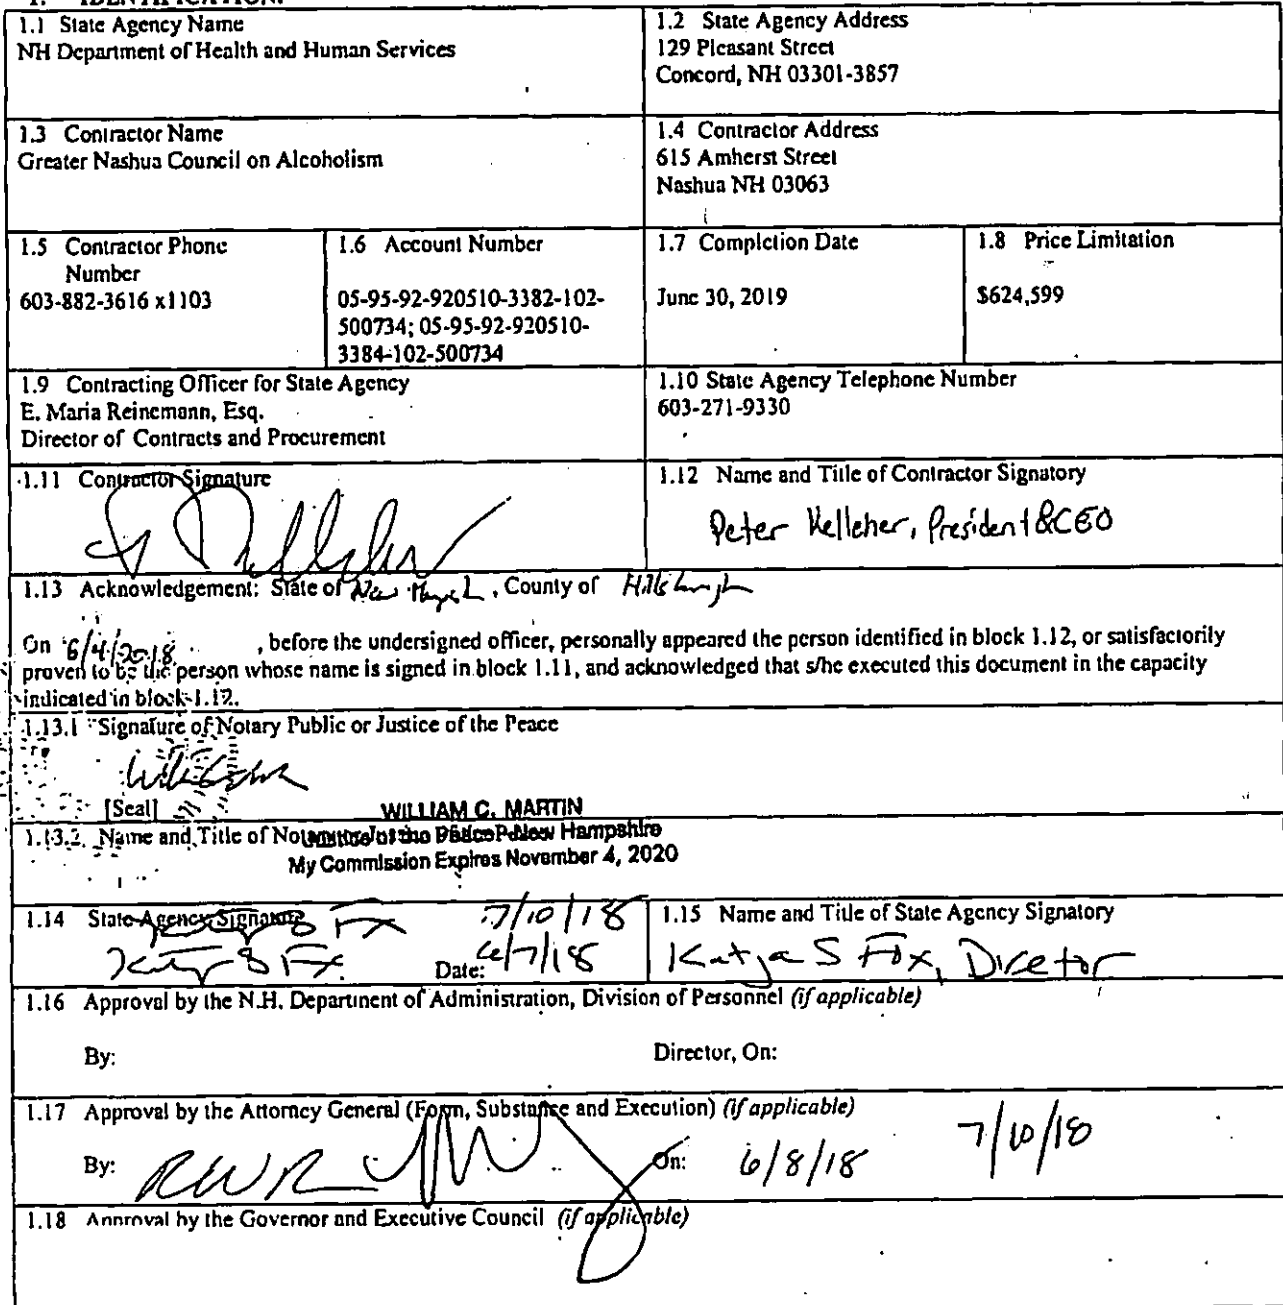 1. IDENTIFICATION.
1.1 State Agency Name
NH Department of Health and Human Services
1.2 State Agency Address
129 Pleasant Street
Concord, NH 03301-3857
1.3 Contractor Name
Greater Nashua Council on Alcoholism
1.4 Contractor Address
615 Amherst Street
Nashua NH 03063
1.5 Contractor Phone
Number
603-882-3616 x1103
1.6 Account Number
05-95-92-920510-3382-102-
500734; 05-95-92-920510-
3384-102-500734
1.7 Completion Date
June 30, 2019
1.8 Price Limitation
$624,599
1.9 Contracting Officer for State Agency
E. Maria Reinemann, Esq.
Director of Contracts and Procurement
1.10 State Agency Telephone Number
603-271-9330
1.11 Contractor Signature
1.12 Name and Title of Contractor Signatory
Peter Kelleher, President & CEO
1.13 Acknowledgement: State of New Hampsh, County of Hillsborough
On 6/4/2018 , before the undersigned officer, personally appeared the person identified in block 1.12, or satisfactorily
proven to be the person whose name is signed in block 1.11, and acknowledged that s/he executed this document in the capacity
indicated in block 1.12.
1.13.1 Signature of Notary Public or Justice of the Peace
[Seal]
WILLIAM C. MARTIN
1.13.2 Name and Title of Notary or Justice of the Peace
Justice of the Peace - New Hampshire
My Commission Expires November 4, 2020
1.14 State Agency Signature
7/10/18
Date: 6/7/18
1.15 Name and Title of State Agency Signatory
Katja S Fox, Director
1.16 Approval by the N.H. Department of Administration, Division of Personnel (if applicable)
By: Director, On:
1.17 Approval by the Attorney General (Form, Substance and Execution) (if applicable)
By: On: 6/8/18 7/10/18
1.18 Approval by the Governor and Executive Council (if applicable)